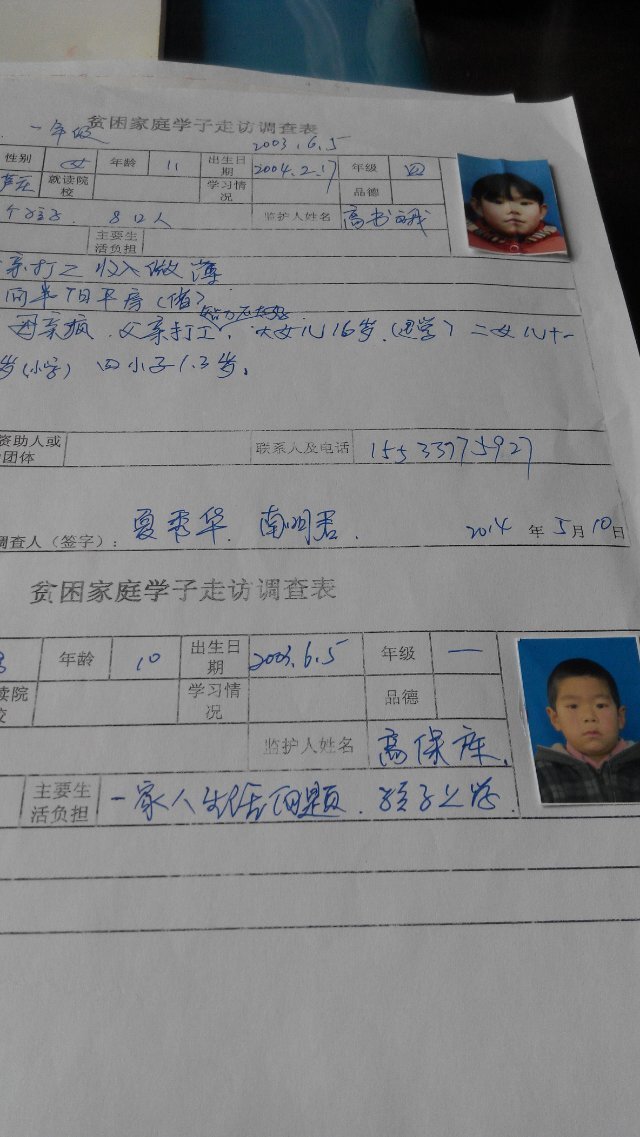 一年级 贫困家庭学子走访调查表
2003.6.5
性别 女 年龄 11 出生日期 2004.2.17 年级 四
就读院校 学习情况 品德
个孩子. 8口人 监护人姓名 高书
主要生活负担
亲打工 收入微薄
间半旧平房(借)
母亲疯. 父亲打工, 大女儿16岁.(退学) 二女儿十一
岁(小学) 四小子1.3岁.
资助人或团体 联系人及电话 15533775927
调查人(签字): 夏秀华. 南明君. 2014 年 5 月 10 日
贫困家庭学子走访调查表
年龄 10 出生日期 2003.6.5 年级 一
读院校 学习情况 品德
监护人姓名 高保库.
主要生活负担 一家人生活问题. 孩子上学.